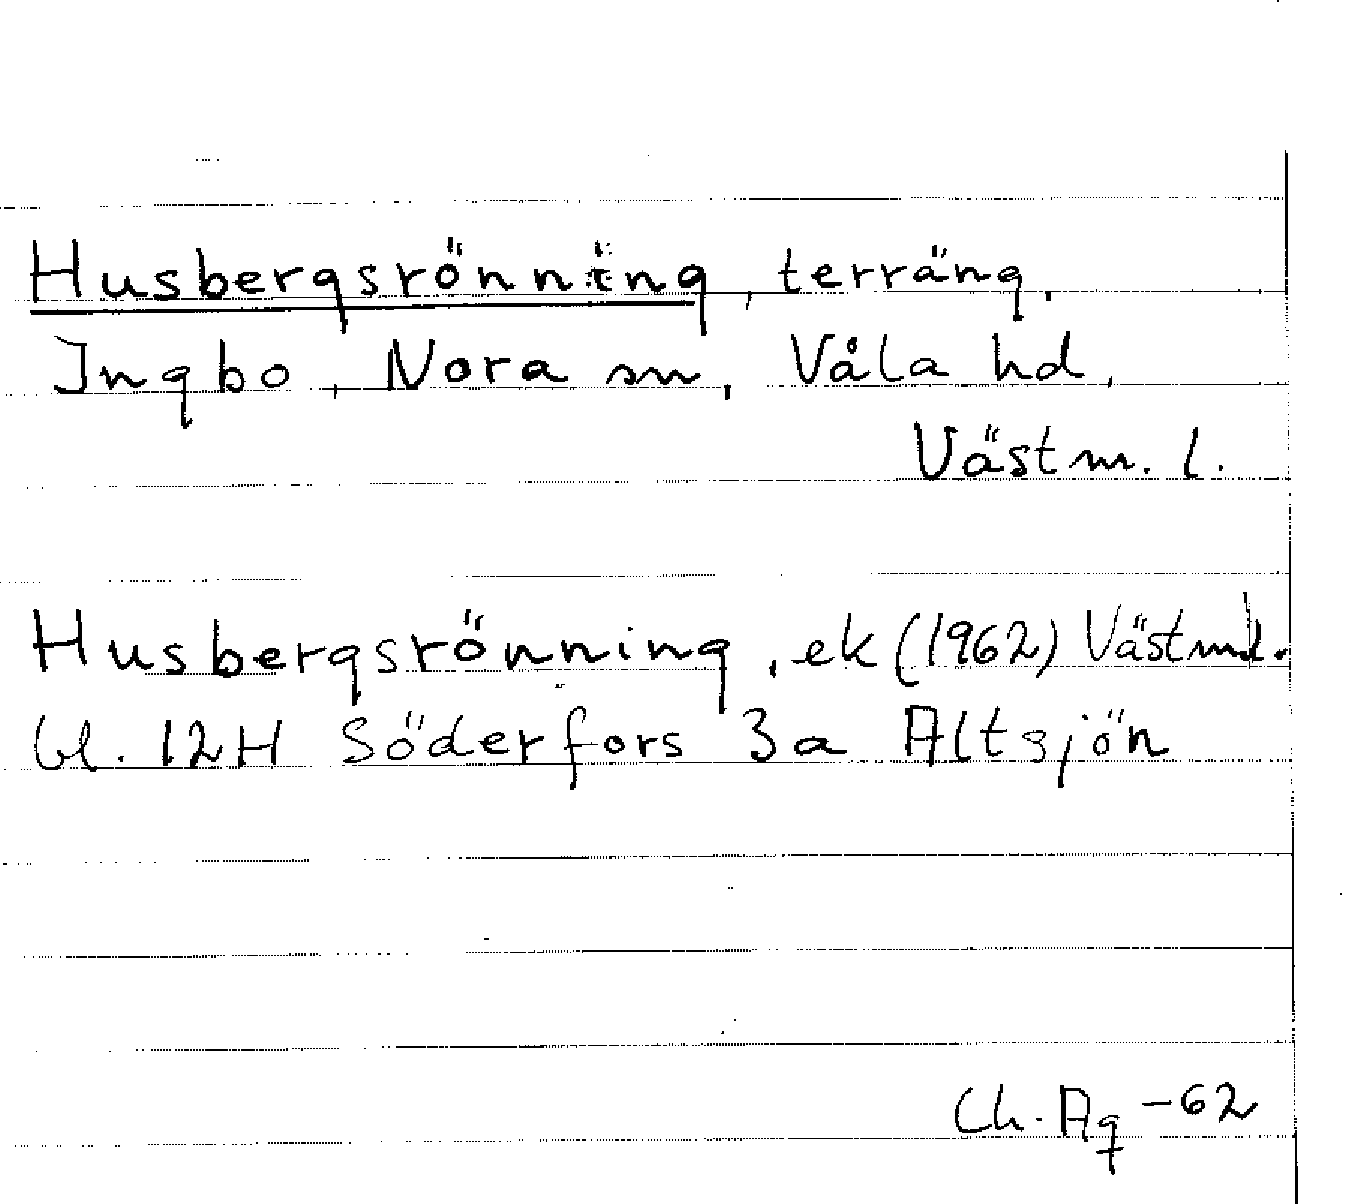 Husbergsrönning, terräng.
Ingbo, Nora sn, Våla hd,
Västm. l.
Husbergsrönning, ek (1962) Västml.
bl. 12H Söderfors 3a Altsjön
Ch. Ag -62